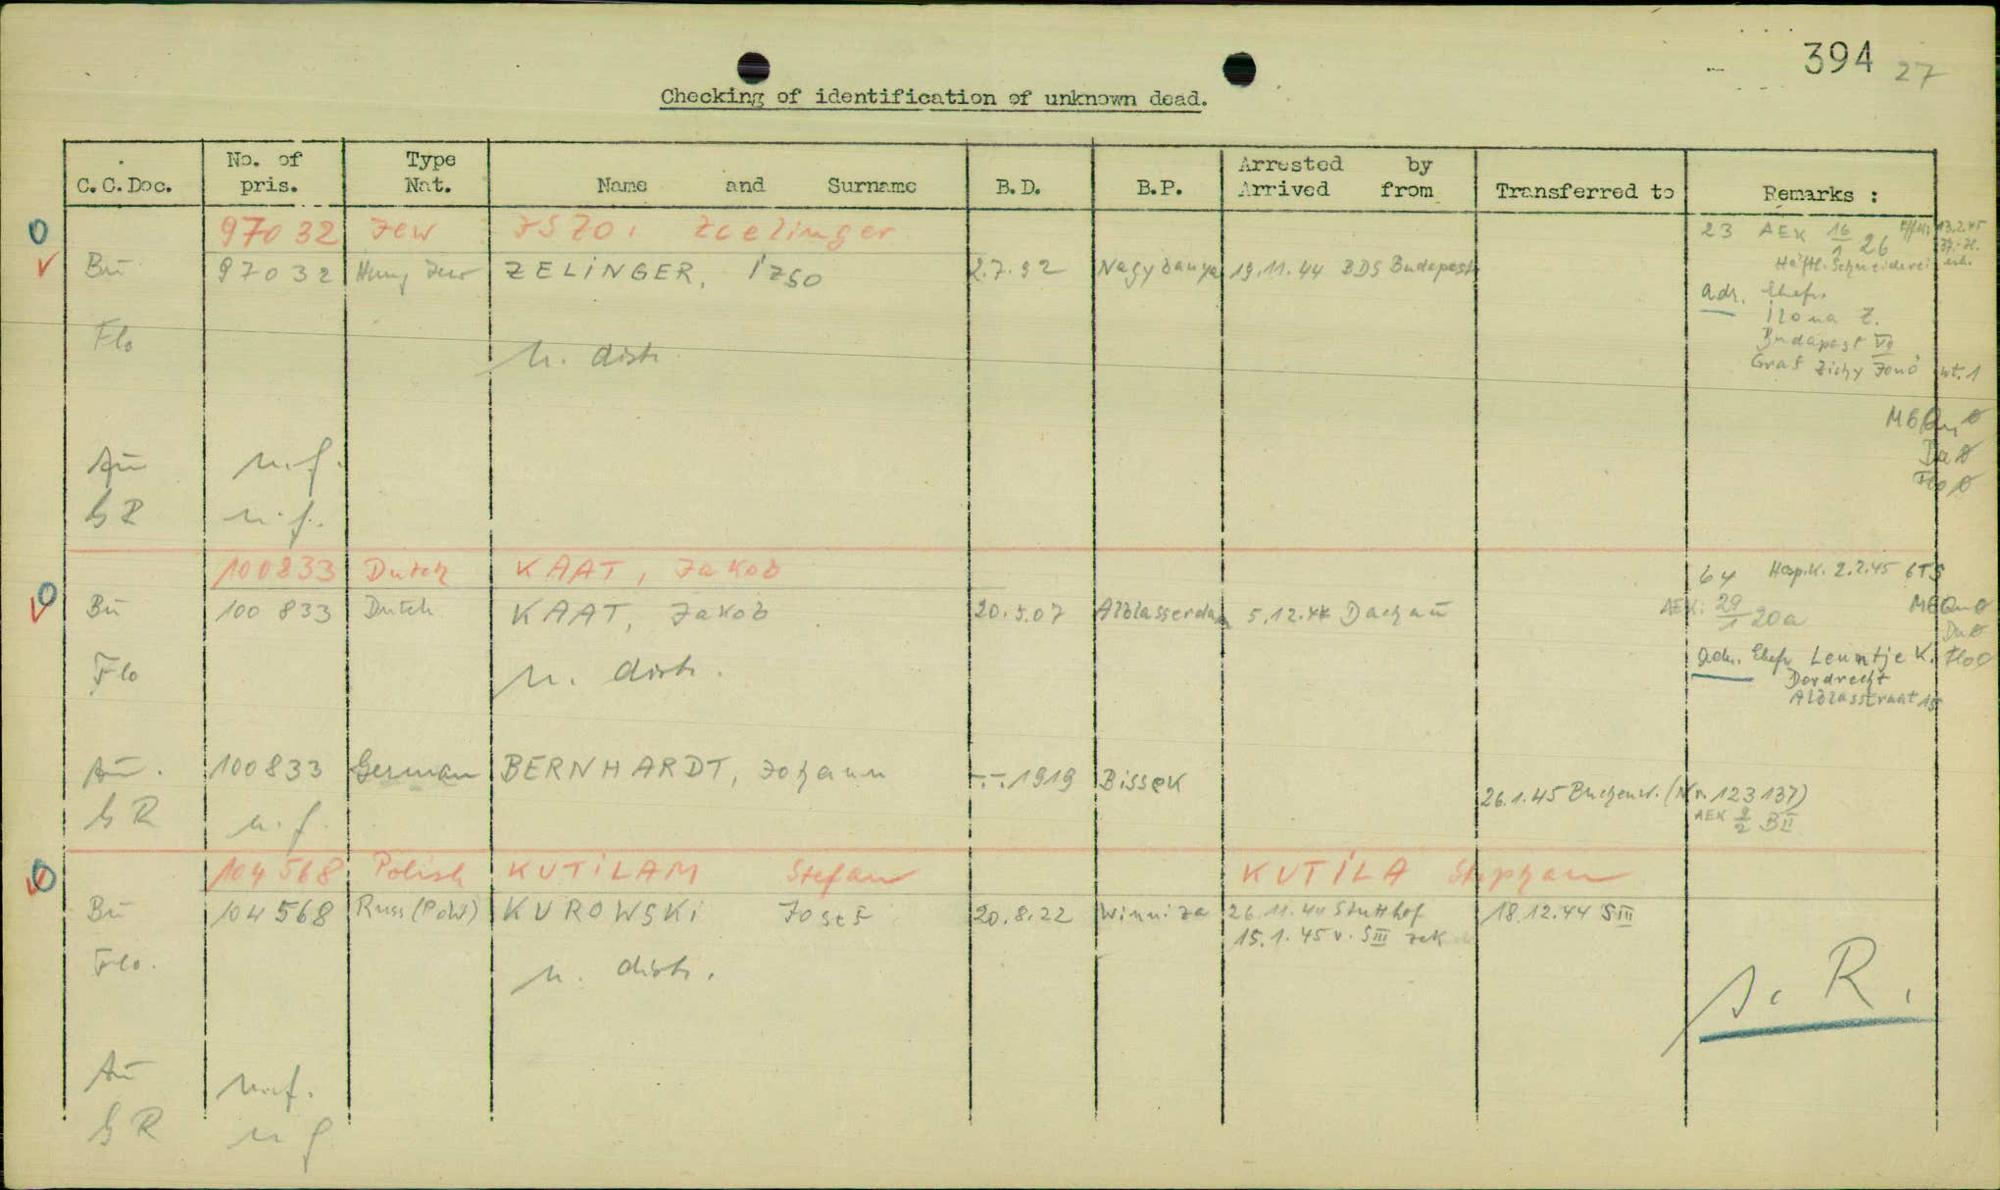 394 27
Checking of identification of unknown dead.
C.C.Doc. No. of pris. Type Nat. Name and Surname B.D. B.P. Arrested by Arrived from Transferred to Remarks :
97032 Jew JSZO, Zcelinger 23 AEK 16/1 26 13.2.45
Bu 97032 Hung Jew ZELINGER, Izso 2.7.92 Nagybanya 19.11.44 BDS Budapest Häftl. Schneiderei
adr. Ehefr.
Ilona Z.
Budapest VII
Flo n. distr. Graf Zichy Jenö ut. 1
MG Qu 0
Au n.f. Da 0
Flo 0
GR n.f.
100833 Dutch KAAT, Jakob 64 Hosp.K. 2.2.45 6TS
Bu 100833 Dutch KAAT, Jakob 20.5.07 Alblasserdam 5.12.44 Dachau AEK: 29/1 20a MG Qu 0
Da 0
Flo n. distr. adr. Ehefr Leuntje K. Flo 0
Dordrecht
Alblasstraat 15
Au. 100833 German BERNHARDT, Johann -.-.1919 Bissek 26.1.45 Buchenw. (Nr. 123137)
GR n.f. AEK 2/2 BII
104568 Polish KUTILAM Stefan KUTILA Stephan
Bu 104568 Russ (PoW) KUROWSKI Josef 20.8.22 Winniza 26.11.44 Stutthof 18.12.44 SIII
15.1.45 v. SIII zck
Flo. n. distr.
s. R.
Au n.f.
GR n f